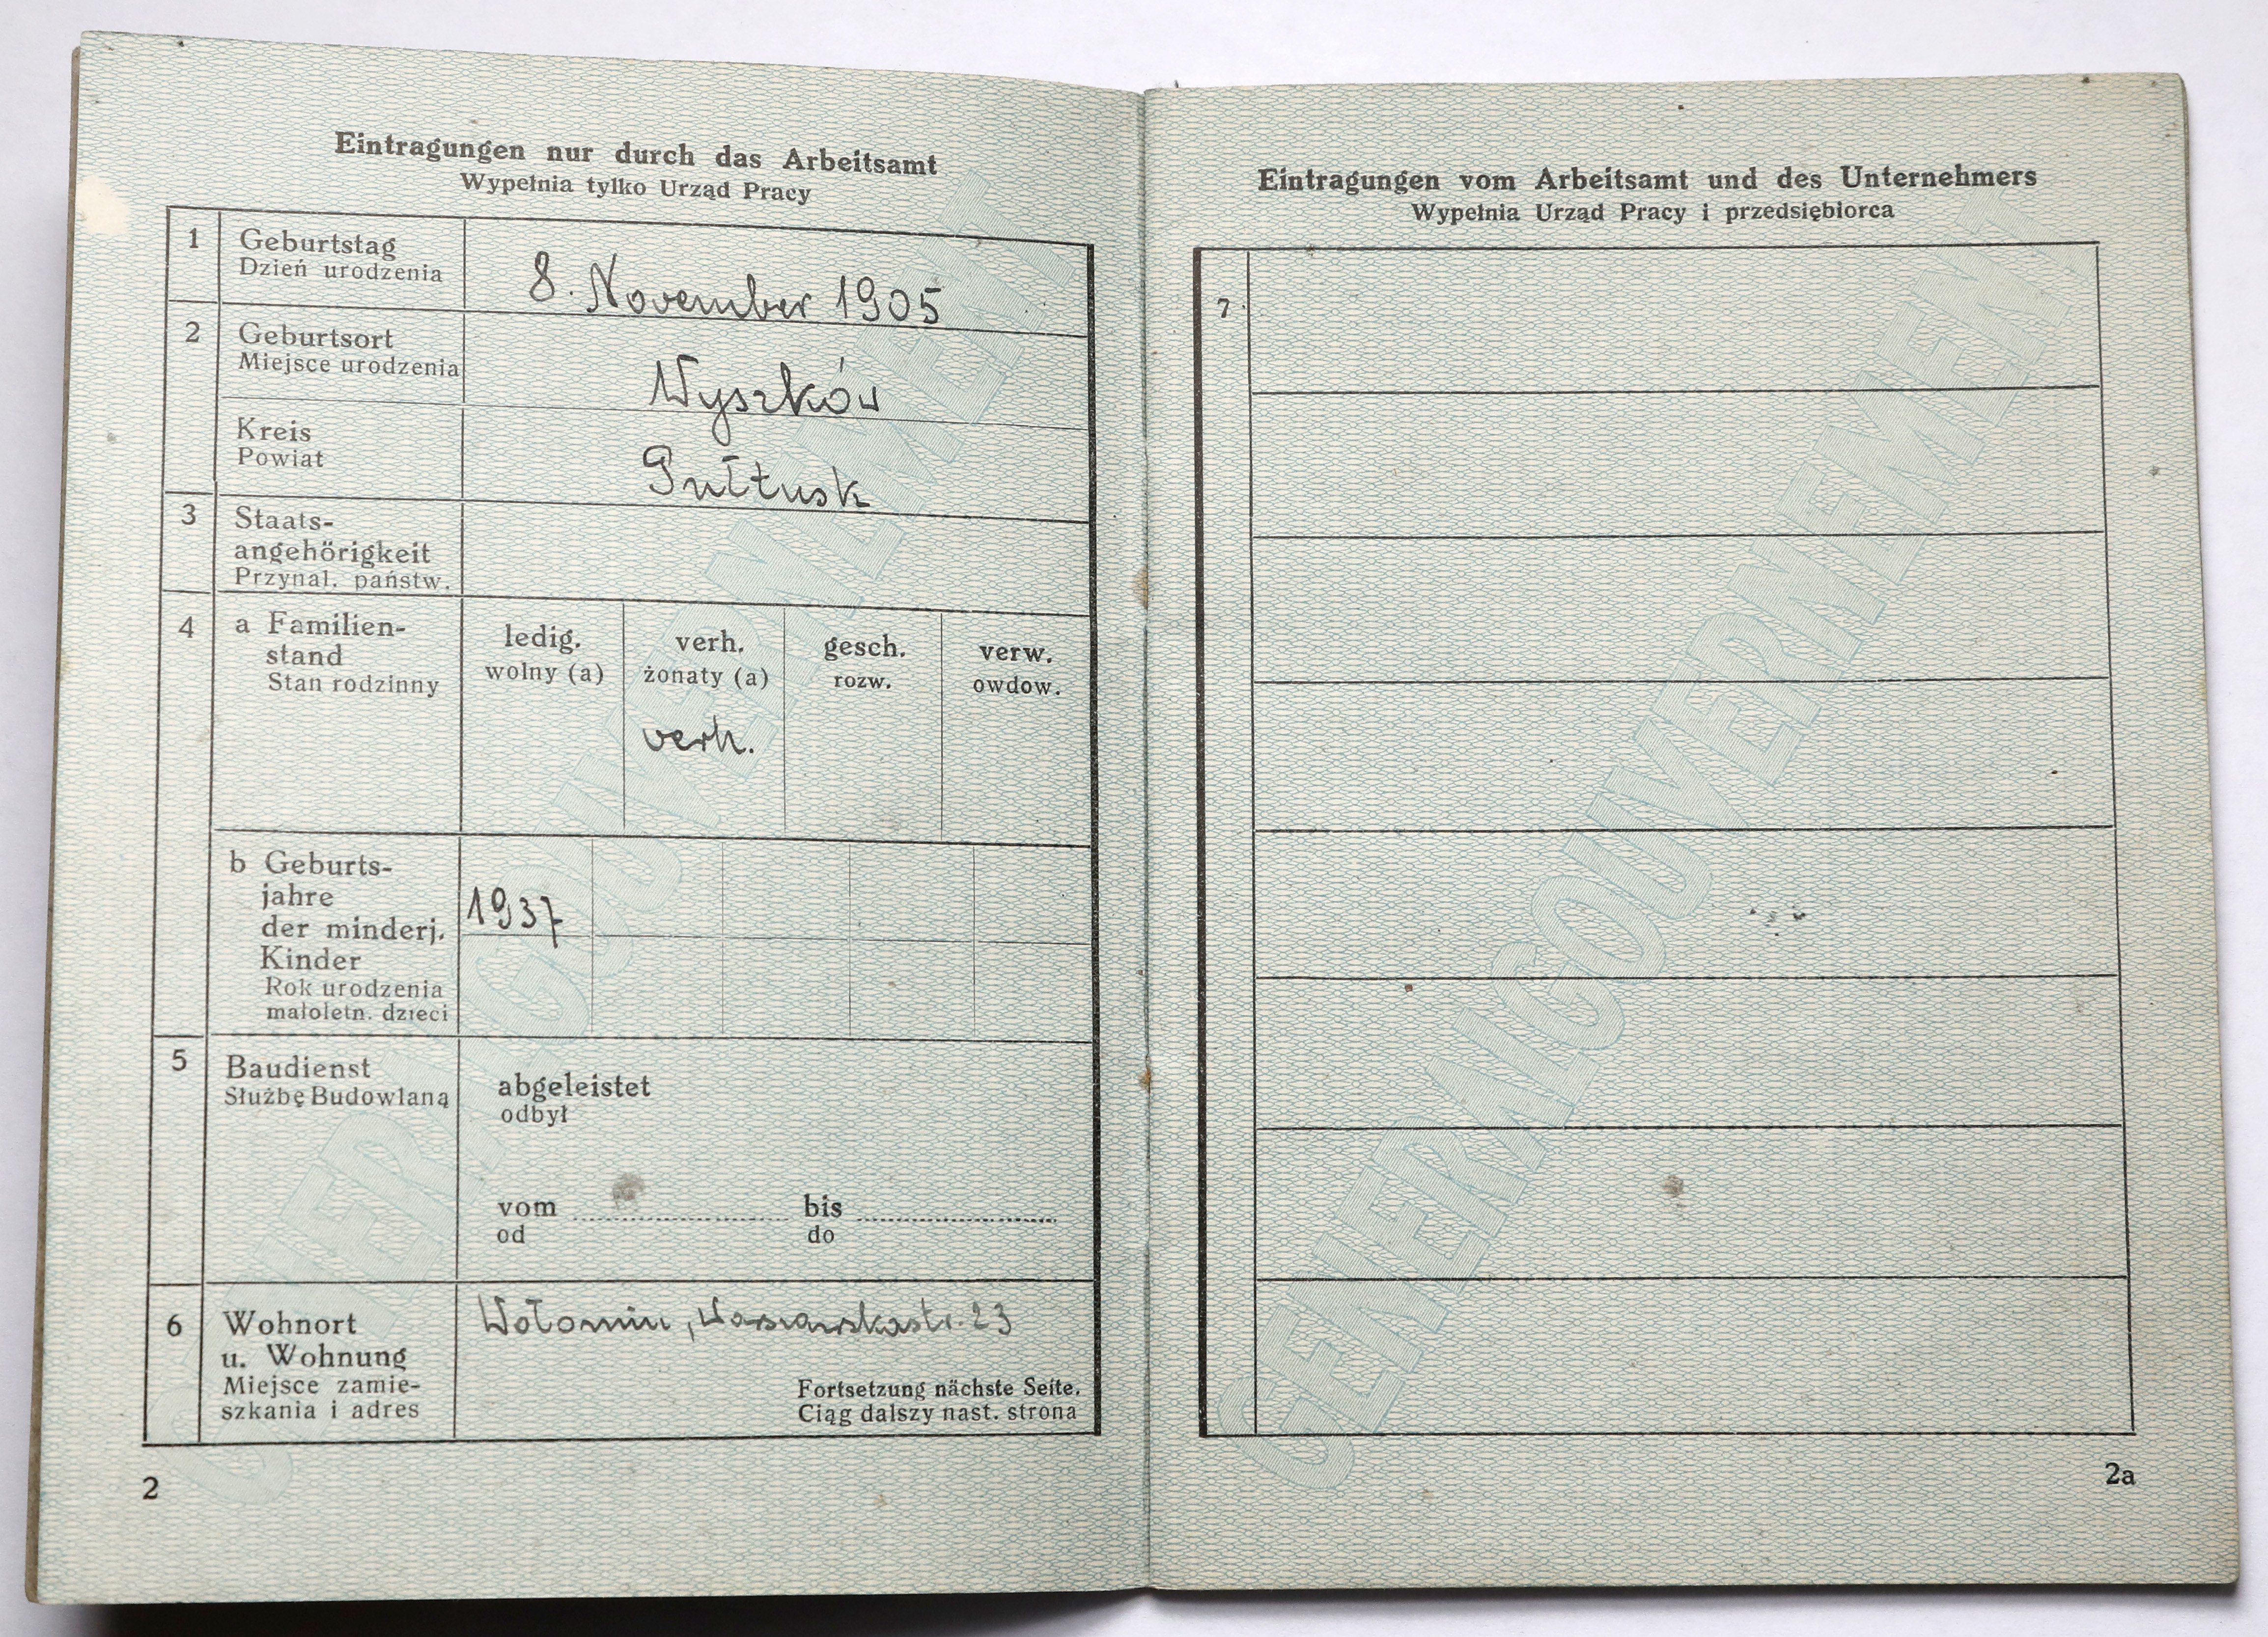 Eintragungen nur durch das Arbeitsamt
Wypełnia tylko Urząd Pracy
1
Geburtstag
Dzień urodzenia
8. November 1905
2
Geburtsort
Miejsce urodzenia
Wyszków
Kreis
Powiat
Pułtusk
3
Staats-
angehörigkeit
Przynal. państw.
4
a Familien-
stand
Stan rodzinny
ledig.
wolny (a)
verh.
żonaty (a)
gesch.
rozw.
verw.
owdow.
verh.
b Geburts-
jahre
der minderj.
Kinder
Rok urodzenia
małoletn. dzieci
1937
5
Baudienst
Służbę Budowlaną
abgeleistet
odbył
vom
od
bis
do
6
Wohnort
u. Wohnung
Miejsce zamie-
szkania i adres
Wołomin, 23
Fortsetzung nächste Seite.
Ciąg dalszy nast. strona
2
GENERALGOUVERNEMENT
Eintragungen vom Arbeitsamt und des Unternehmers
Wypełnia Urząd Pracy i przedsiębiorca
7
2a
GENERALGOUVERNEMENT